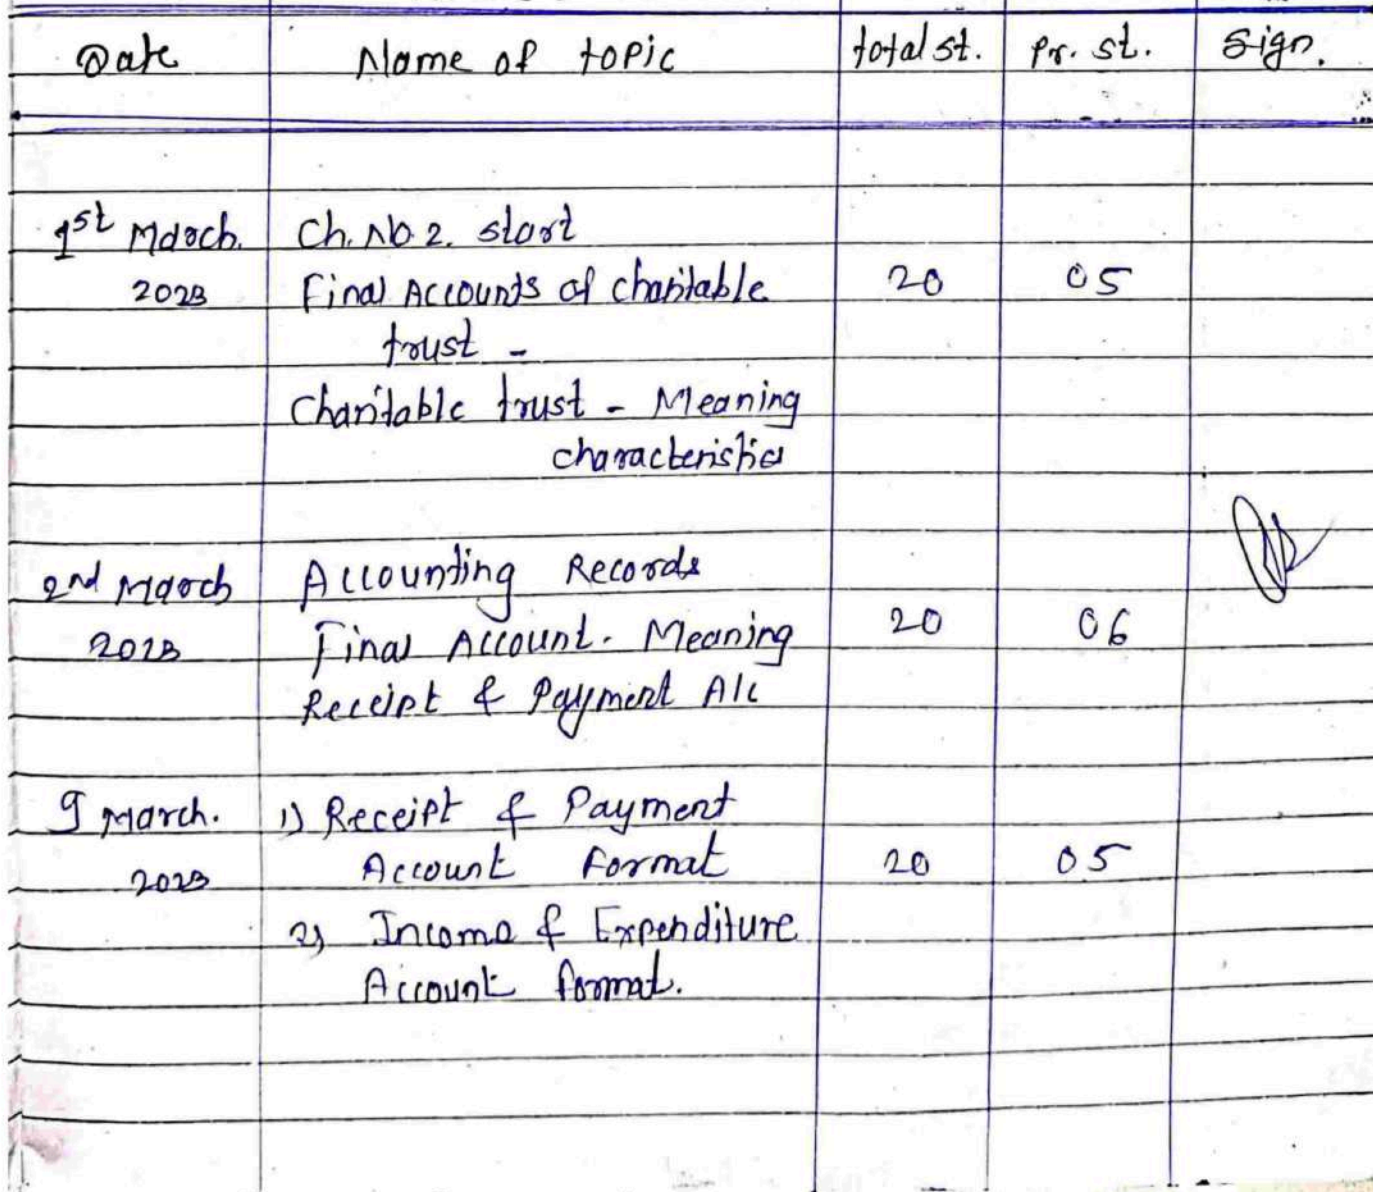 Date Name of topic total st. Pr. st. Sign.
1st March. Ch. No. 2. start
2023 Final Accounts of charitable 20 05
trust -
Charitable trust - Meaning
characteristics
2nd March Accounting Records
2023 Final Account. Meaning 20 06
Receipt & Payment A/c
9 March. 1) Receipt & Payment
2023 Account Format 20 05
2) Income & Expenditure
Account format.